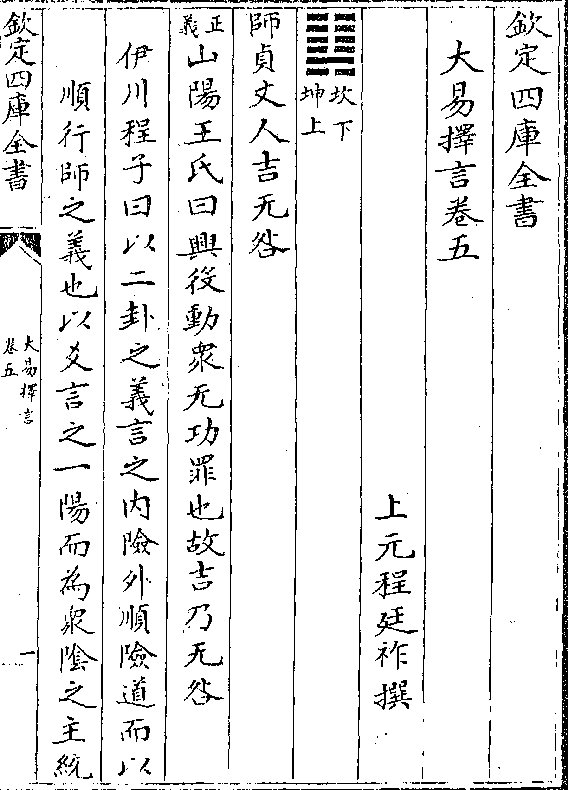 欽定四庫全書
大易擇言卷五
上元程廷祚撰
䷆坎下
坤上
師貞丈人吉无咎
正義
山陽王氏曰興役動衆无功罪也故吉乃无咎
伊川程子曰以二卦之義言之内險外順險道而以
順行師之義也以爻言之一陽而為衆陰之主統
欽定四庫全書
大易擇言
卷五
一